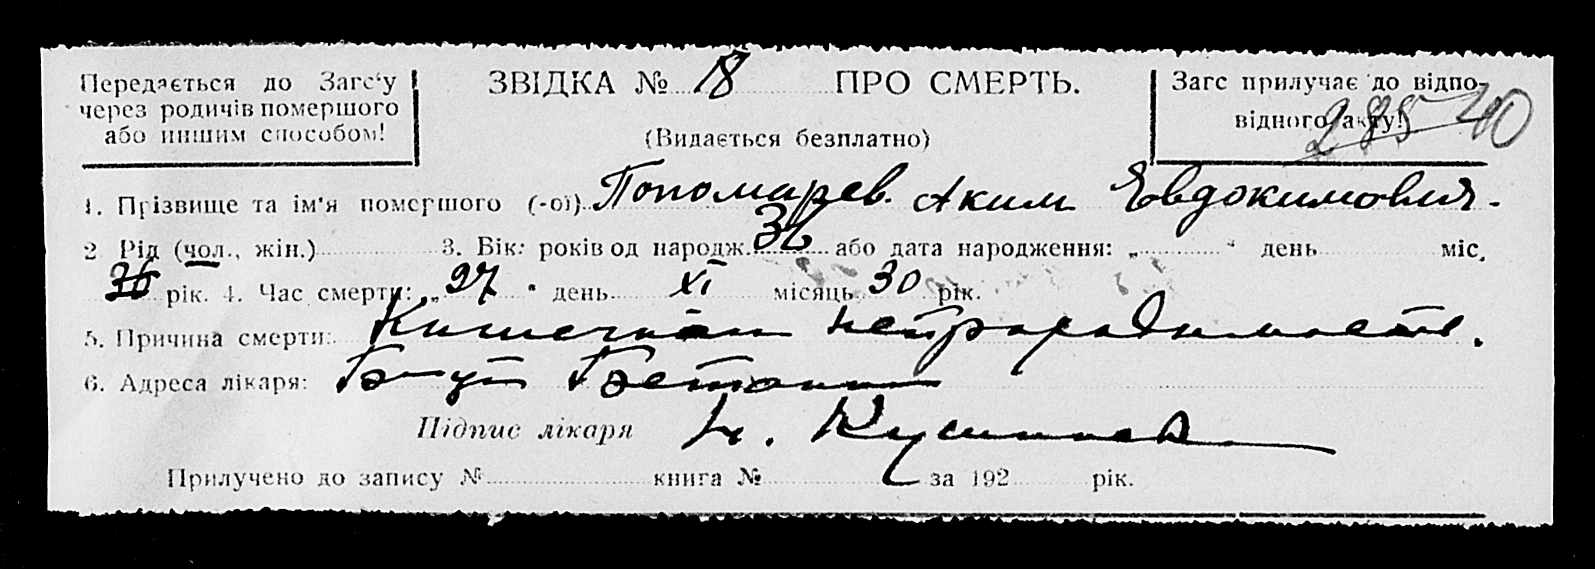 Передається до Загс'у
через родичів помершого
або иншим способом!
ЗВІДКА № 18 ПРО СМЕРТЬ.
(Видається безплатно)
Загс прилучає до відпо-
відного акту!
285 40
1. Прізвище та ім'я помершого (-ої) Пономарев. Аким Евдокимович.
2 Рід (чол., жін.) 3. Вік: років од народж. 36 або дата народження: „ “ день міс.
36 рік. 4. Час смерти: „ 27 “ день XI місяць 30 рік.
5. Причина смерти: Кишечная непроходимость.
6. Адреса лікаря:
Підпис лікаря
Прилучено до запису № книга № за 192 рік.